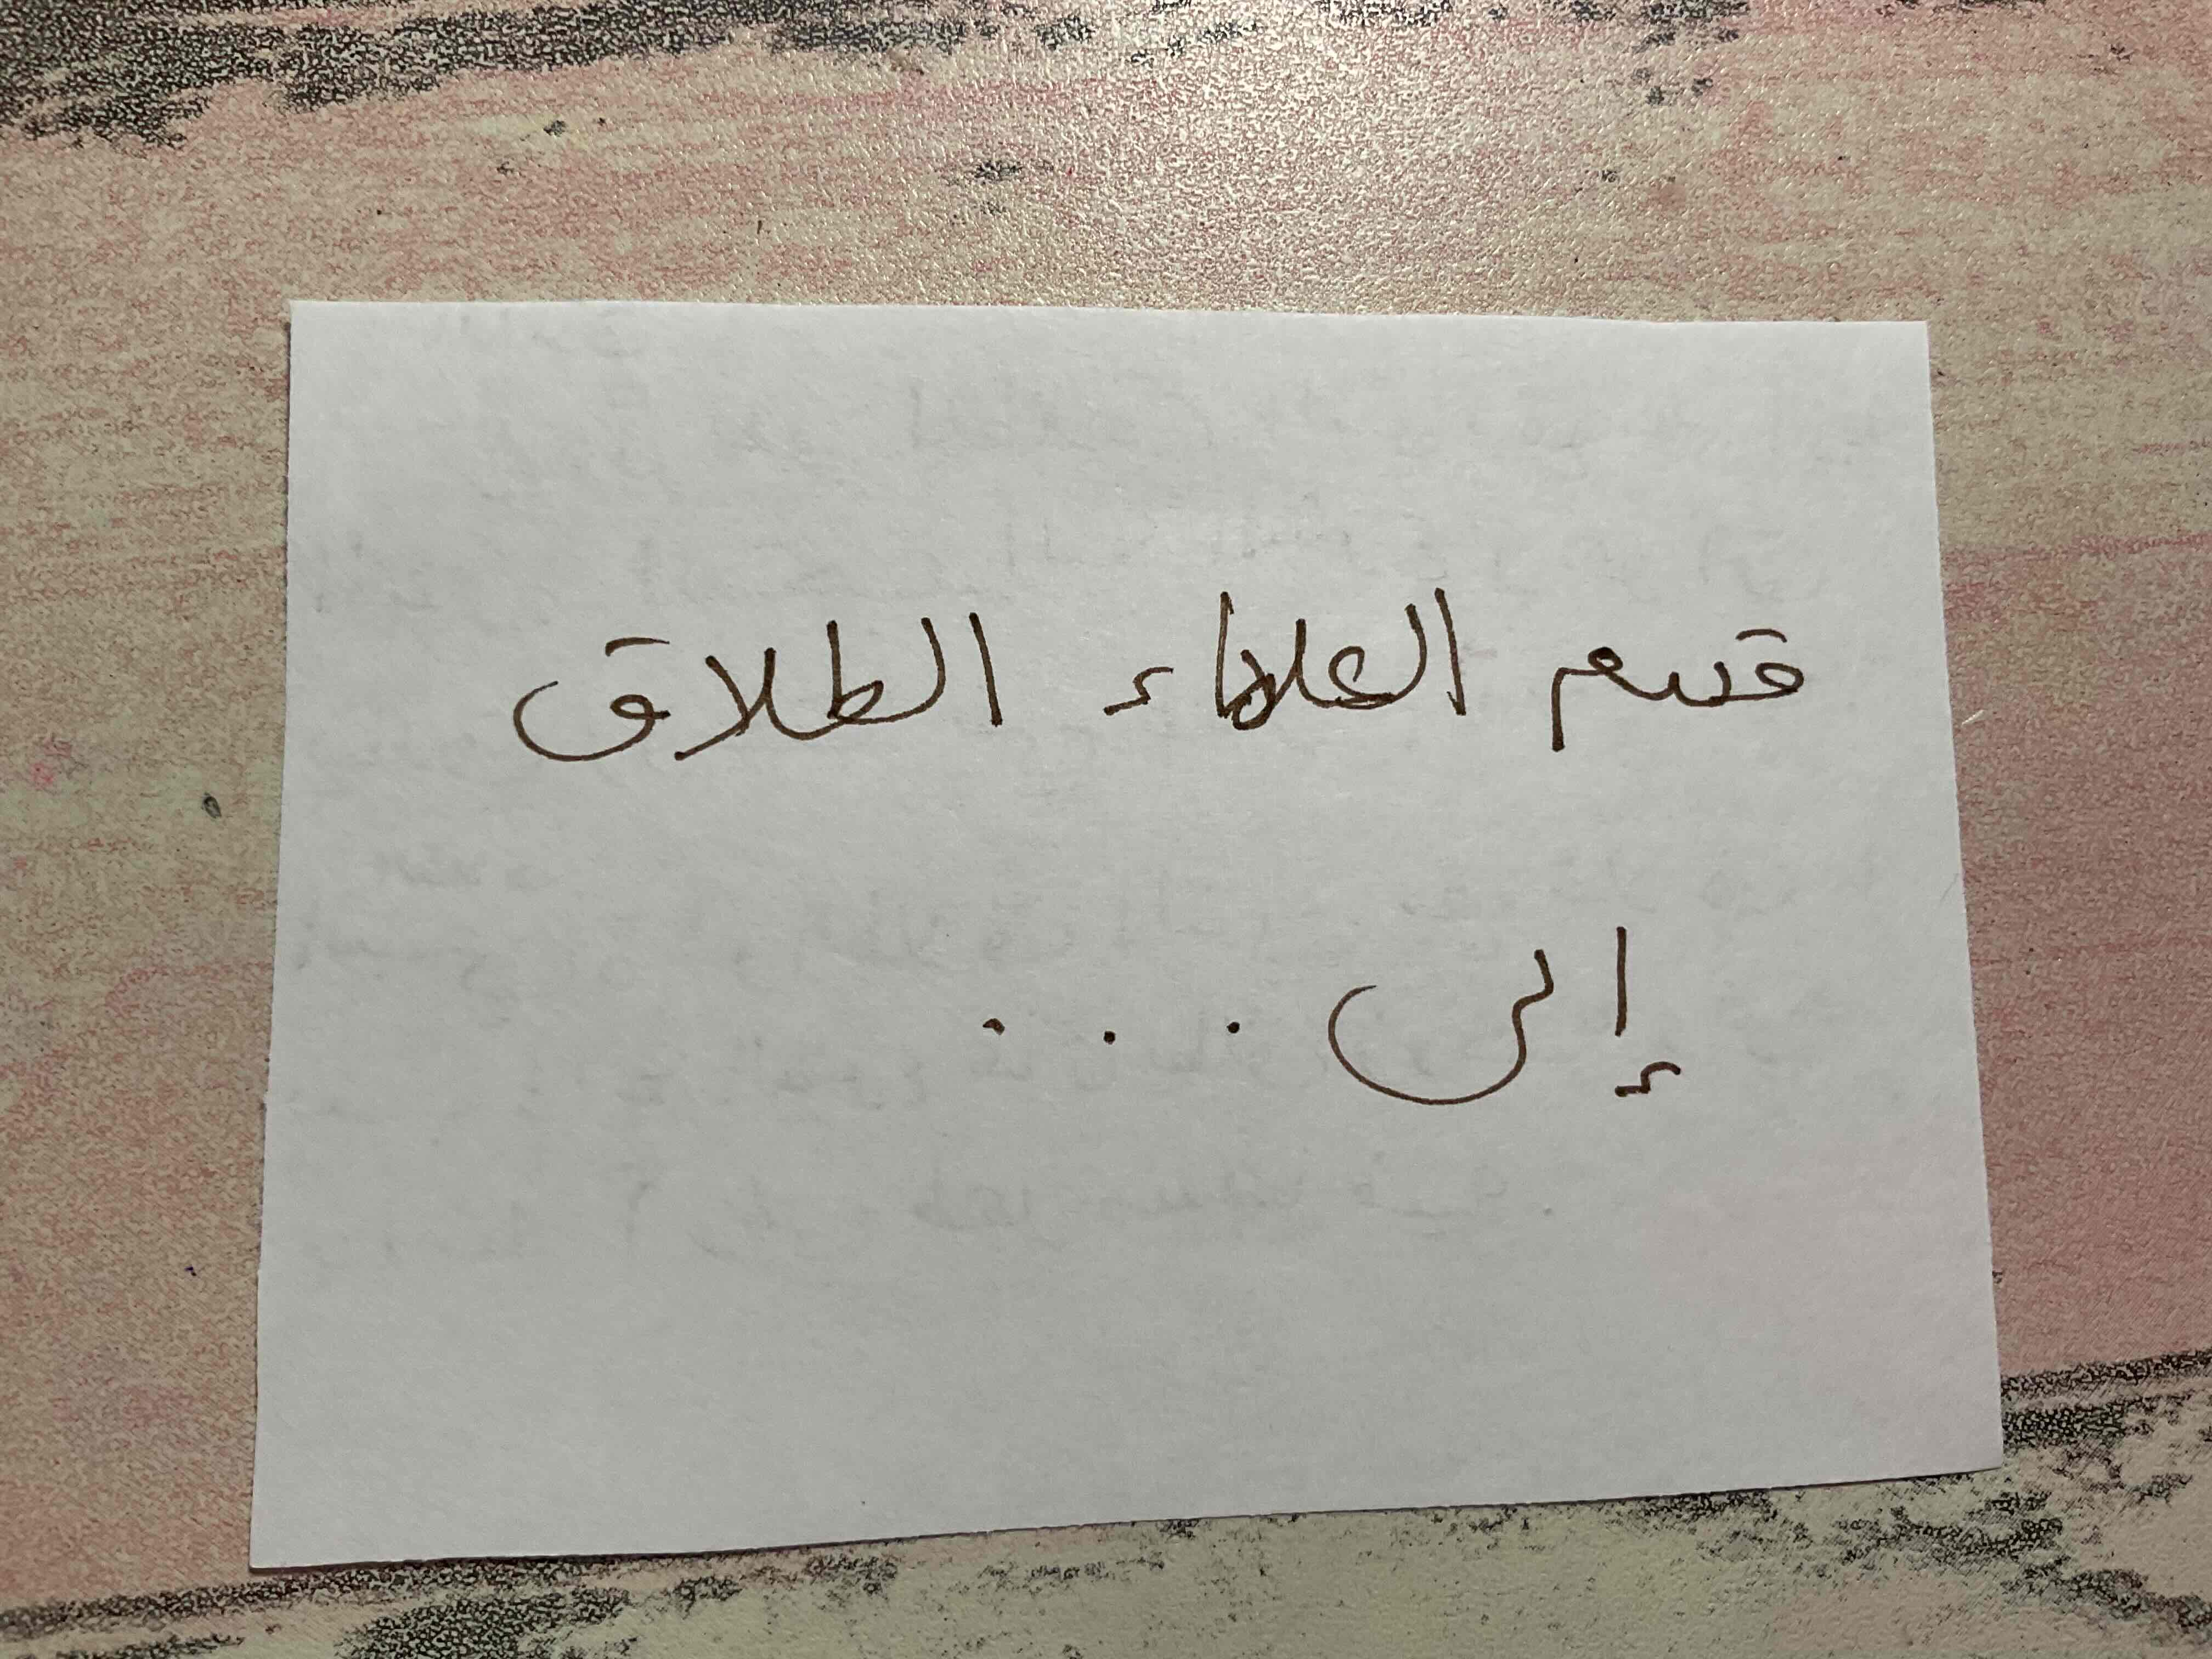 قسم العلماء الطلاق
إلى . . .